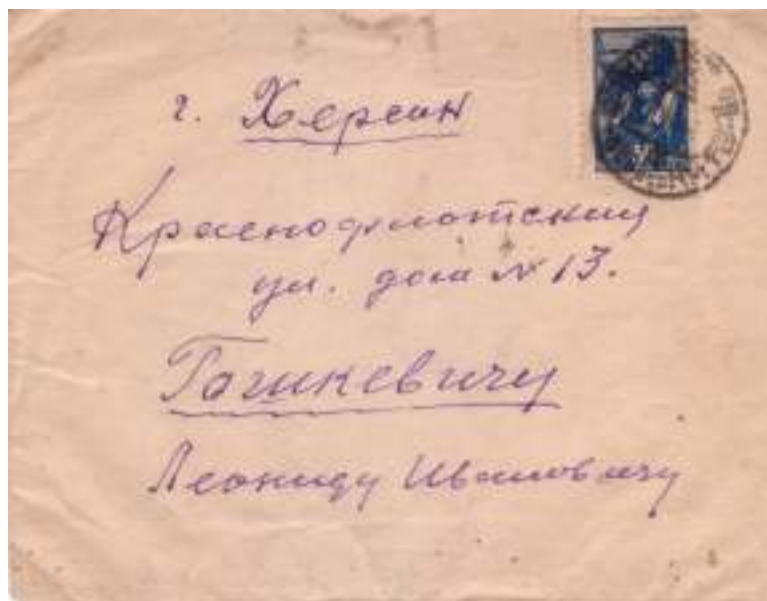 г. Херсон
Краснофлотский
ул. дом № 13.
Гашкевичу
Леониду Ивановичу